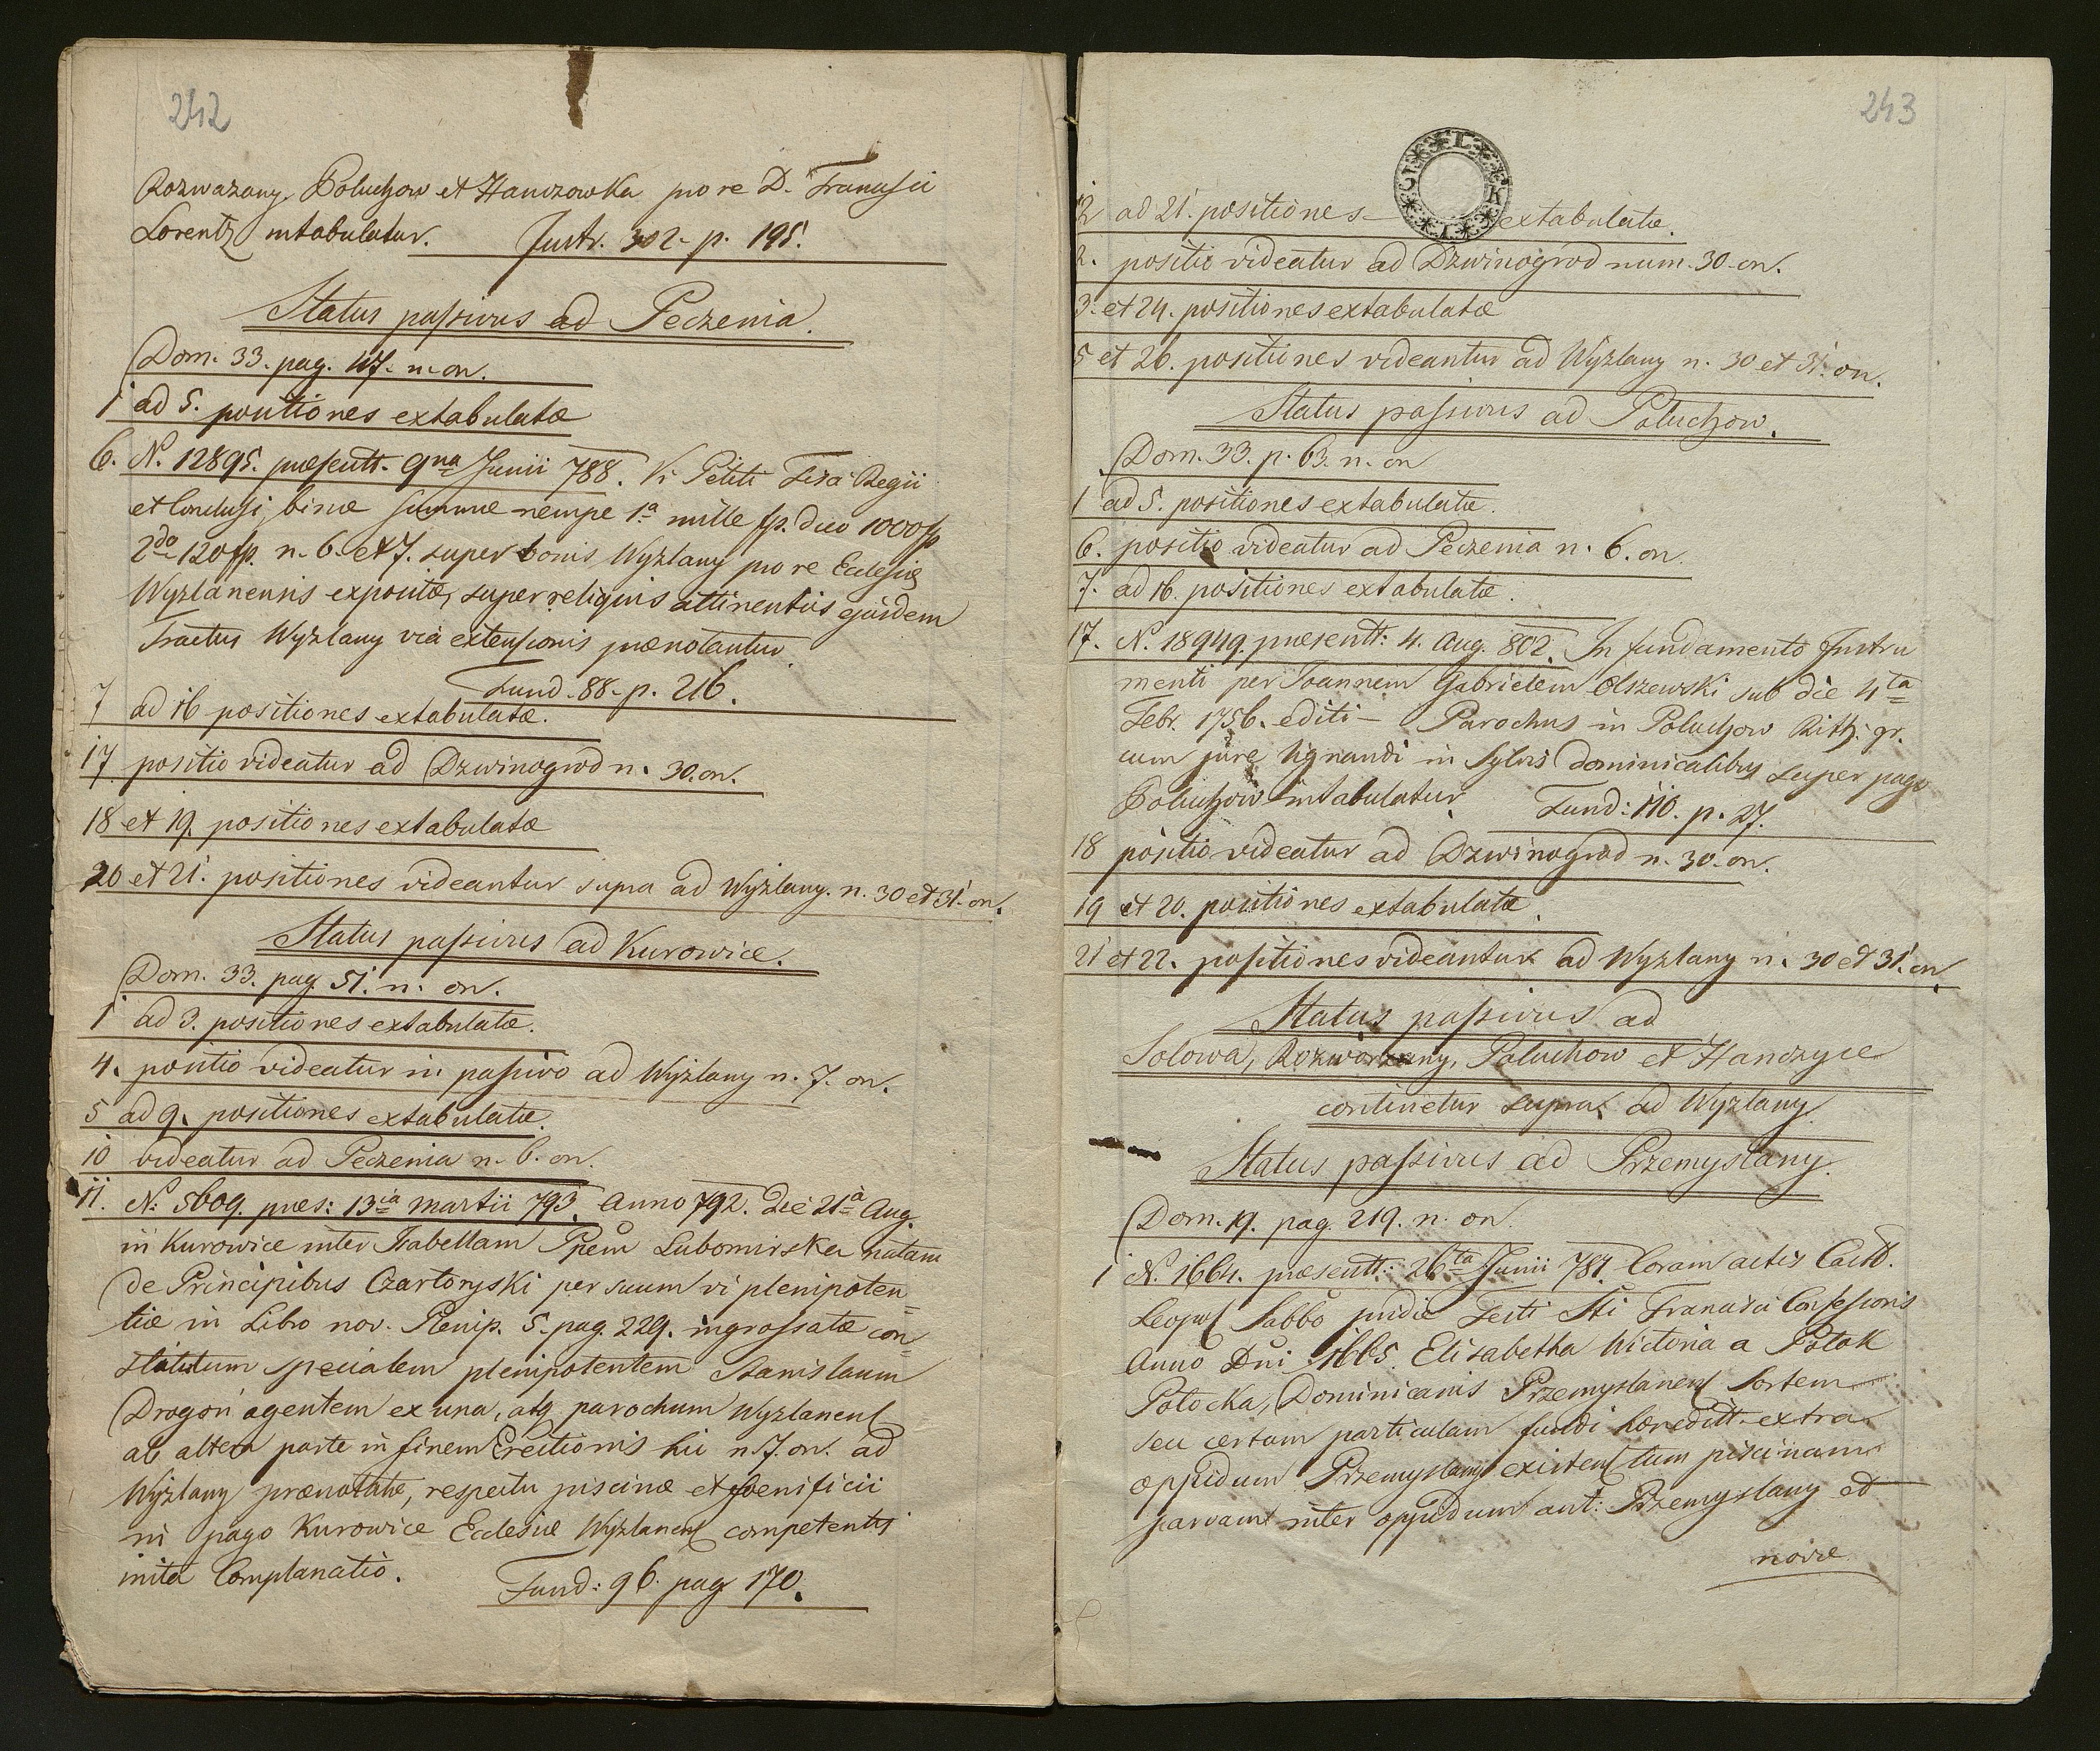 242
Rozwazany, Poluchow et Hanczowka pro re D. Francisci
Lorentz intabulatur. Instr. 302. p. 195.
Status passivus ad Peczenia.
Dom. 33. pag. 47. n. on.
1 ad 5. positiones extabulatæ
6. N. 12895. præsentt. 9na Junii 788. Petiti Fisci Regii
et Conclusi, binæ summæ nempe 1a mille fp. duo 1000 fp
2do 120 fp. n. 6. et 7. super bonis Wyzlany pro re Ecclesiæ
Wyzlanensis expositæ, super reliquis attinentiis ejusdem
Tractus Wyzlany via extensionis prænotantur
Fund. 88. p. 216.
7 ad 16 positiones extabulatæ.
17 positio videatur ad Dzwinogrod n. 30. on.
18 et 19. positiones extabulatæ
20 et 21. positiones videantur supra ad Wyzlany. n. 30 et 31. on.
Status passivus ad Kurowice.
Dom. 33. pag. 51. n. on.
1 ad 3. positiones extabulatæ.
4. positio videatur in passivo ad Wyzlany n. 7. on.
5 ad 9. positiones extabulatæ.
10 videatur ad Peczenia n. 6. on.
11. N: 5609. præs: 13ia martii 793. Anno 792. Die 21a Aug.
in Kurowice inter Isabellam Ppem Lubomirska natam
de Principibus Czartoryski per suum vi plenipoten=
tiæ in Libro nov. Plenip. 5. pag. 229. ingrossatæ con=
stitutum specialem plenipotentem Stanislaum
Drogon agentem ex una, atq parochum Wyzlanens
ab altera parte in finem Erectionis hic n. 7. on. ad
Wyzlany prænotatæ, respectu piscinæ et foenificii
in pago Kurowice Ecclesiæ Wyzlanens competentis
inita Complanatio. Fund: 96. pag 170.
243
2 ad 21. positiones extabulatæ.
2. positio videatur ad Dzwinogrod num. 30. on.
3. et 24. positiones extabulatæ
5 et 26. positiones videantur ad Wyzlany n. 30 et 31. on.
Status passivus ad Poluchow.
Dom. 33. p. 63. n. on
1 ad 5. positiones extabulatæ.
6. positio videatur ad Peczenia n. 6. on.
7. ad 16. positiones extabulatæ.
17. N. 18949. præsentt: 4. Aug. 802. In fundamento Instru
menti per Joannem Gabrielem Olszewski sub die 4ta
Febr. 1756. editi – Parochus in Poluchow Ritt. gr.
cum jure lignandi in Sylvis dominicalibus super pago
Poluchow intabulatur. Fund: 110. p. 27.
18 positio videatur ad Dzwinogrod n. 30. on.
19 et 20. positiones extabulatæ.
21 et 22. positiones videantur ad Wyzlany n. 30 et 31. on.
Status passivus ad
Solowa, Rozwarzany, Poluchow et Hanczyce
continetur supra ad Wyzlany.
Status passivus ad Przemyslany.
Dom. 19. pag. 219. n. on.
1 N. 1664. præsentt: 26ta Junii 787. Coram actis Castr.
Leopol Sabbo pridie Festi Sti Francisci Confessoris
Anno Dni 1665. Elisabetha Wictoria a Potok
Potocka, Dominicanis Przemyslanens Sortem
seu certam particulam fundi hæreditt. extra
oppidum Przemyslany existens tum piscinam
parvam inter oppidum ant: Przemyslany et